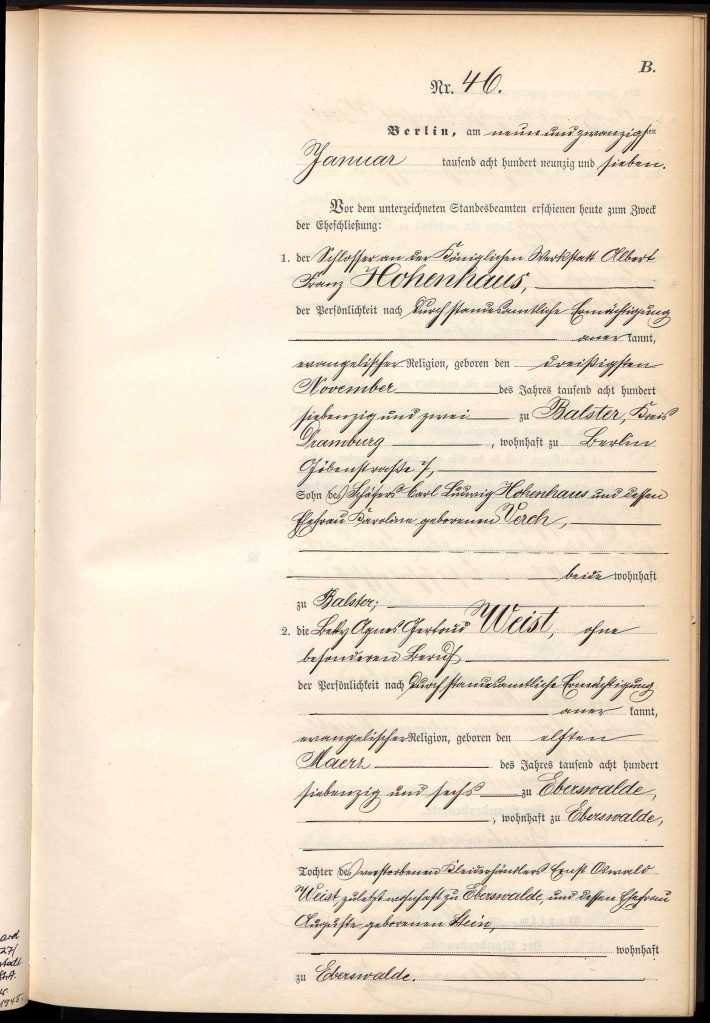 B.
Nr. 46.
Berlin, am neunundzwanzigsten
Januar tausend acht hundert neunzig und sieben.
Vor dem unterzeichneten Standesbeamten erschienen heute zum Zweck
der Eheschließung:
1. der Schlosser an der Königlichen Werkstatt Albert
Franz Hohenhaus,
der Persönlichkeit nach durch standesamtliche Ermächtigung
aner kannt,
evangelischer Religion, geboren den dreißigsten
November des Jahres tausend acht hundert
siebenzig und zwei zu Balster, Kreis
Dramburg, wohnhaft zu Berlin
Göbenstraße
Sohn des Schäfers Carl Ludwig Hohenhaus und dessen
Ehefrau Karoline geborenen Verch,
beide wohnhaft
zu Balster;
2. die Agnes Gertrud Weist, ohne
besonderen Beruf
der Persönlichkeit nach durch standesamtliche Ermächtigung
aner kannt,
evangelischer Religion, geboren den elften
Maerz des Jahres tausend acht hundert
siebenzig und sechs zu Eberswalde,
, wohnhaft zu Eberswalde,
Tochter des verstorbenen Kleiderhändlers Ernst Oswald
Weist zuletzt wohnhaft zu Eberswalde, und dessen Ehefrau
Auguste geborenen Stein,
wohnhaft
zu Eberswalde.
27/
1945.